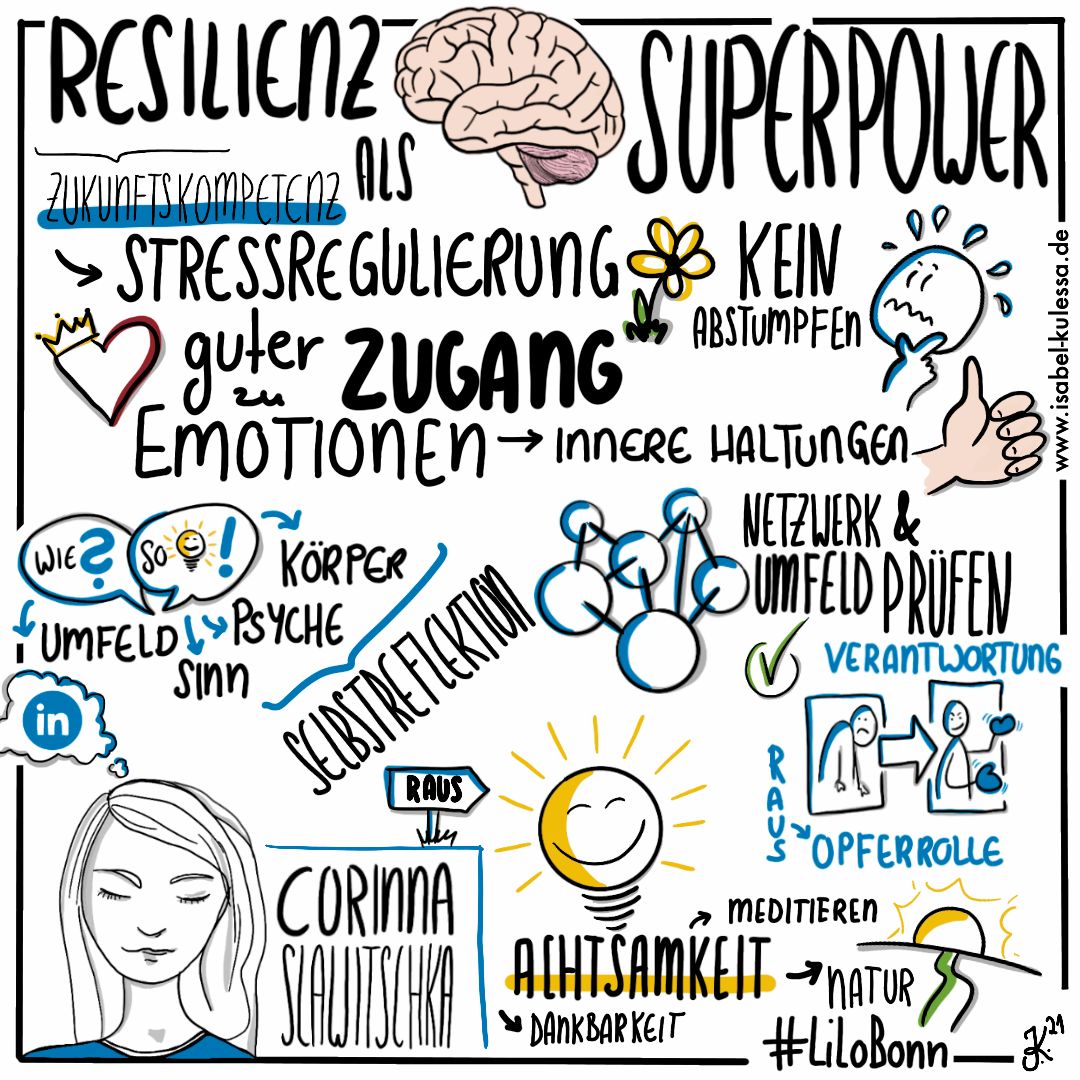 RESILIENZ
ALS
SUPERPOWER
ZUKUNFTSKOMPETENZ
STRESSREGULIERUNG
KEIN
ABSTUMPFEN
guter
zu ZUGANG
EMOTIONEN → INNERE HALTUNGEN
www.isabel-kulessa.de
WIE ?
SO !
KÖRPER
PSYCHE
UMFELD
SINN
SELBSTREFLEKTION
NETZWERK &
UMFELD PRÜFEN
VERANTWORTUNG
RAUS
OPFERROLLE
in
RAUS
CORINNA
SLAWITSCHKA
ACHTSAMKEIT
MEDITIEREN
NATUR
DANKBARKEIT
#LiLoBonn
IK 21